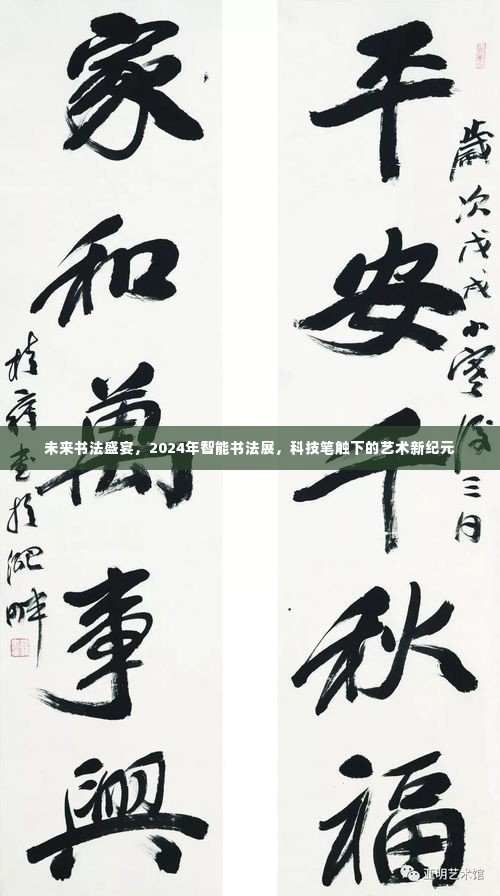 歲次戊戌小寒後三日
平安千秋福
家和萬事興
書於湖畔
未来书法盛宴，2024年智能书法展，科技笔触下的艺术新纪元
亚明艺术馆